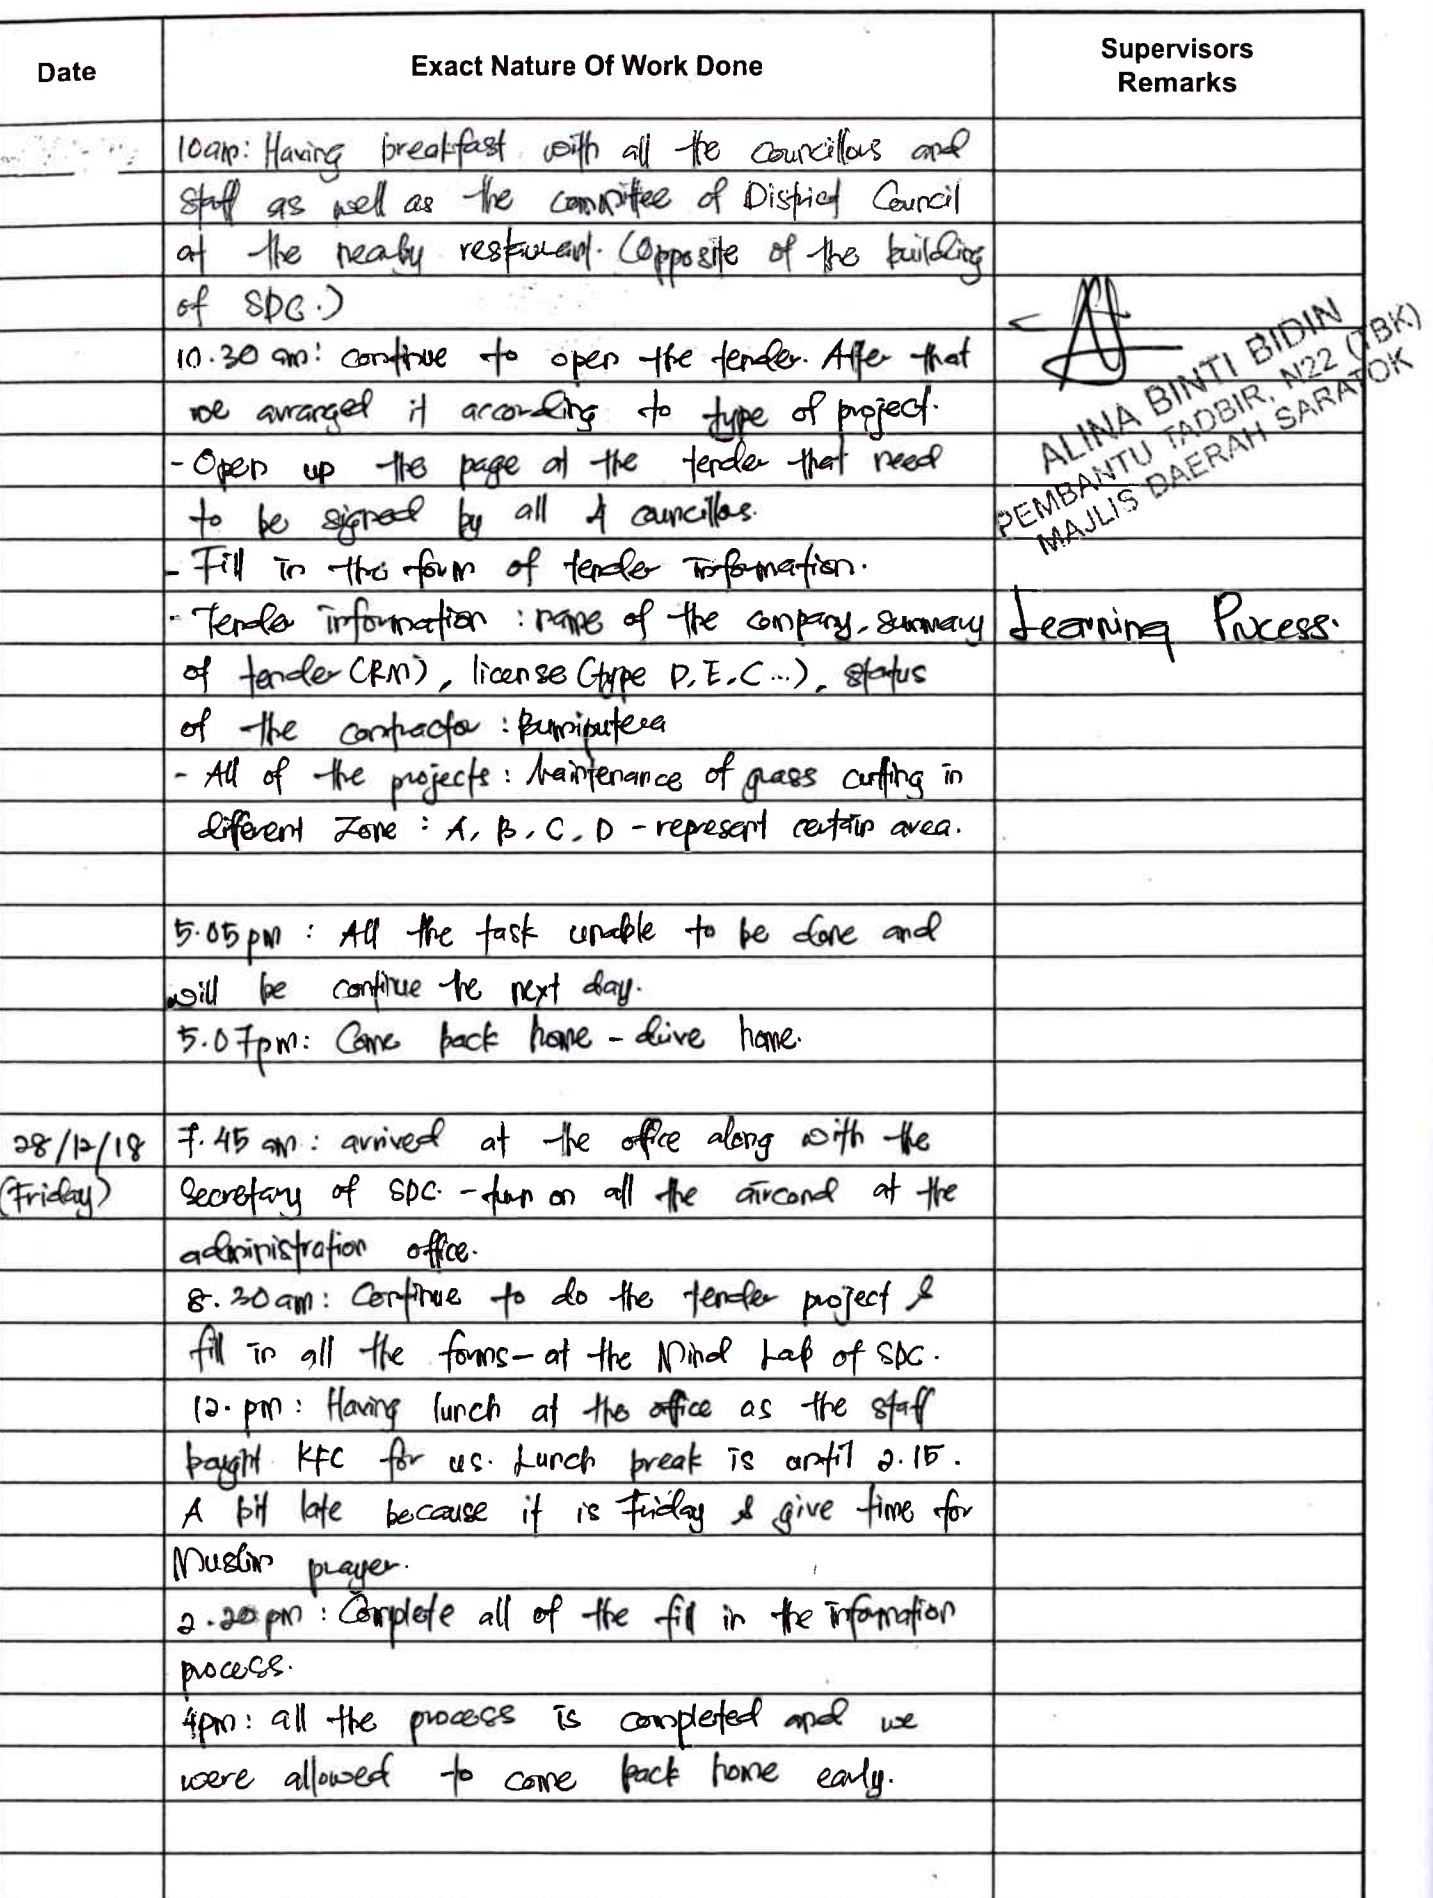 Date
Exact Nature Of Work Done
Supervisors
Remarks
10am: Having breakfast with all the councillors and
staff as well as the committee of District Council
at the nearby restaurant. (Opposite of the building
of SDC.)
10.30 am: continue to open the tender. After that
we arranged it according to type of project.
- Open up the page at the tender that need
to be signed by all 4 councillors.
- Fill in the form of tender information.
- Tender information : name of the company, summary
of tender (RM), license (type D, E, C ...), status
of the contractor : Bumiputera
- All of the projects : Maintenance of grass cutting in
different Zone : A, B, C, D - represent certain area.
ALINA BINTI BIDIN
PEMBANTU TADBIR, N22 (TBK)
MAJLIS DAERAH SARATOK
Learning Process.
5.05 pm : All the task unable to be done and
will be continue the next day.
5.07pm: Come back home - drive home.
28/12/18
(Friday)
7.45 am : arrived at the office along with the
Secretary of SDC. - turn on all the aircond at the
administration office.
8.30am: Continue to do the tender project &
fill in all the forms - at the Mind Lab of SDC.
12. pm : Having lunch at the office as the staff
bought KFC for us. Lunch break is until 2.15.
A bit late because it is Friday & give time for
Muslim prayer.
2.20 pm : Complete all of the fill in the information
process.
4pm: all the process is completed and we
were allowed to come back home early.